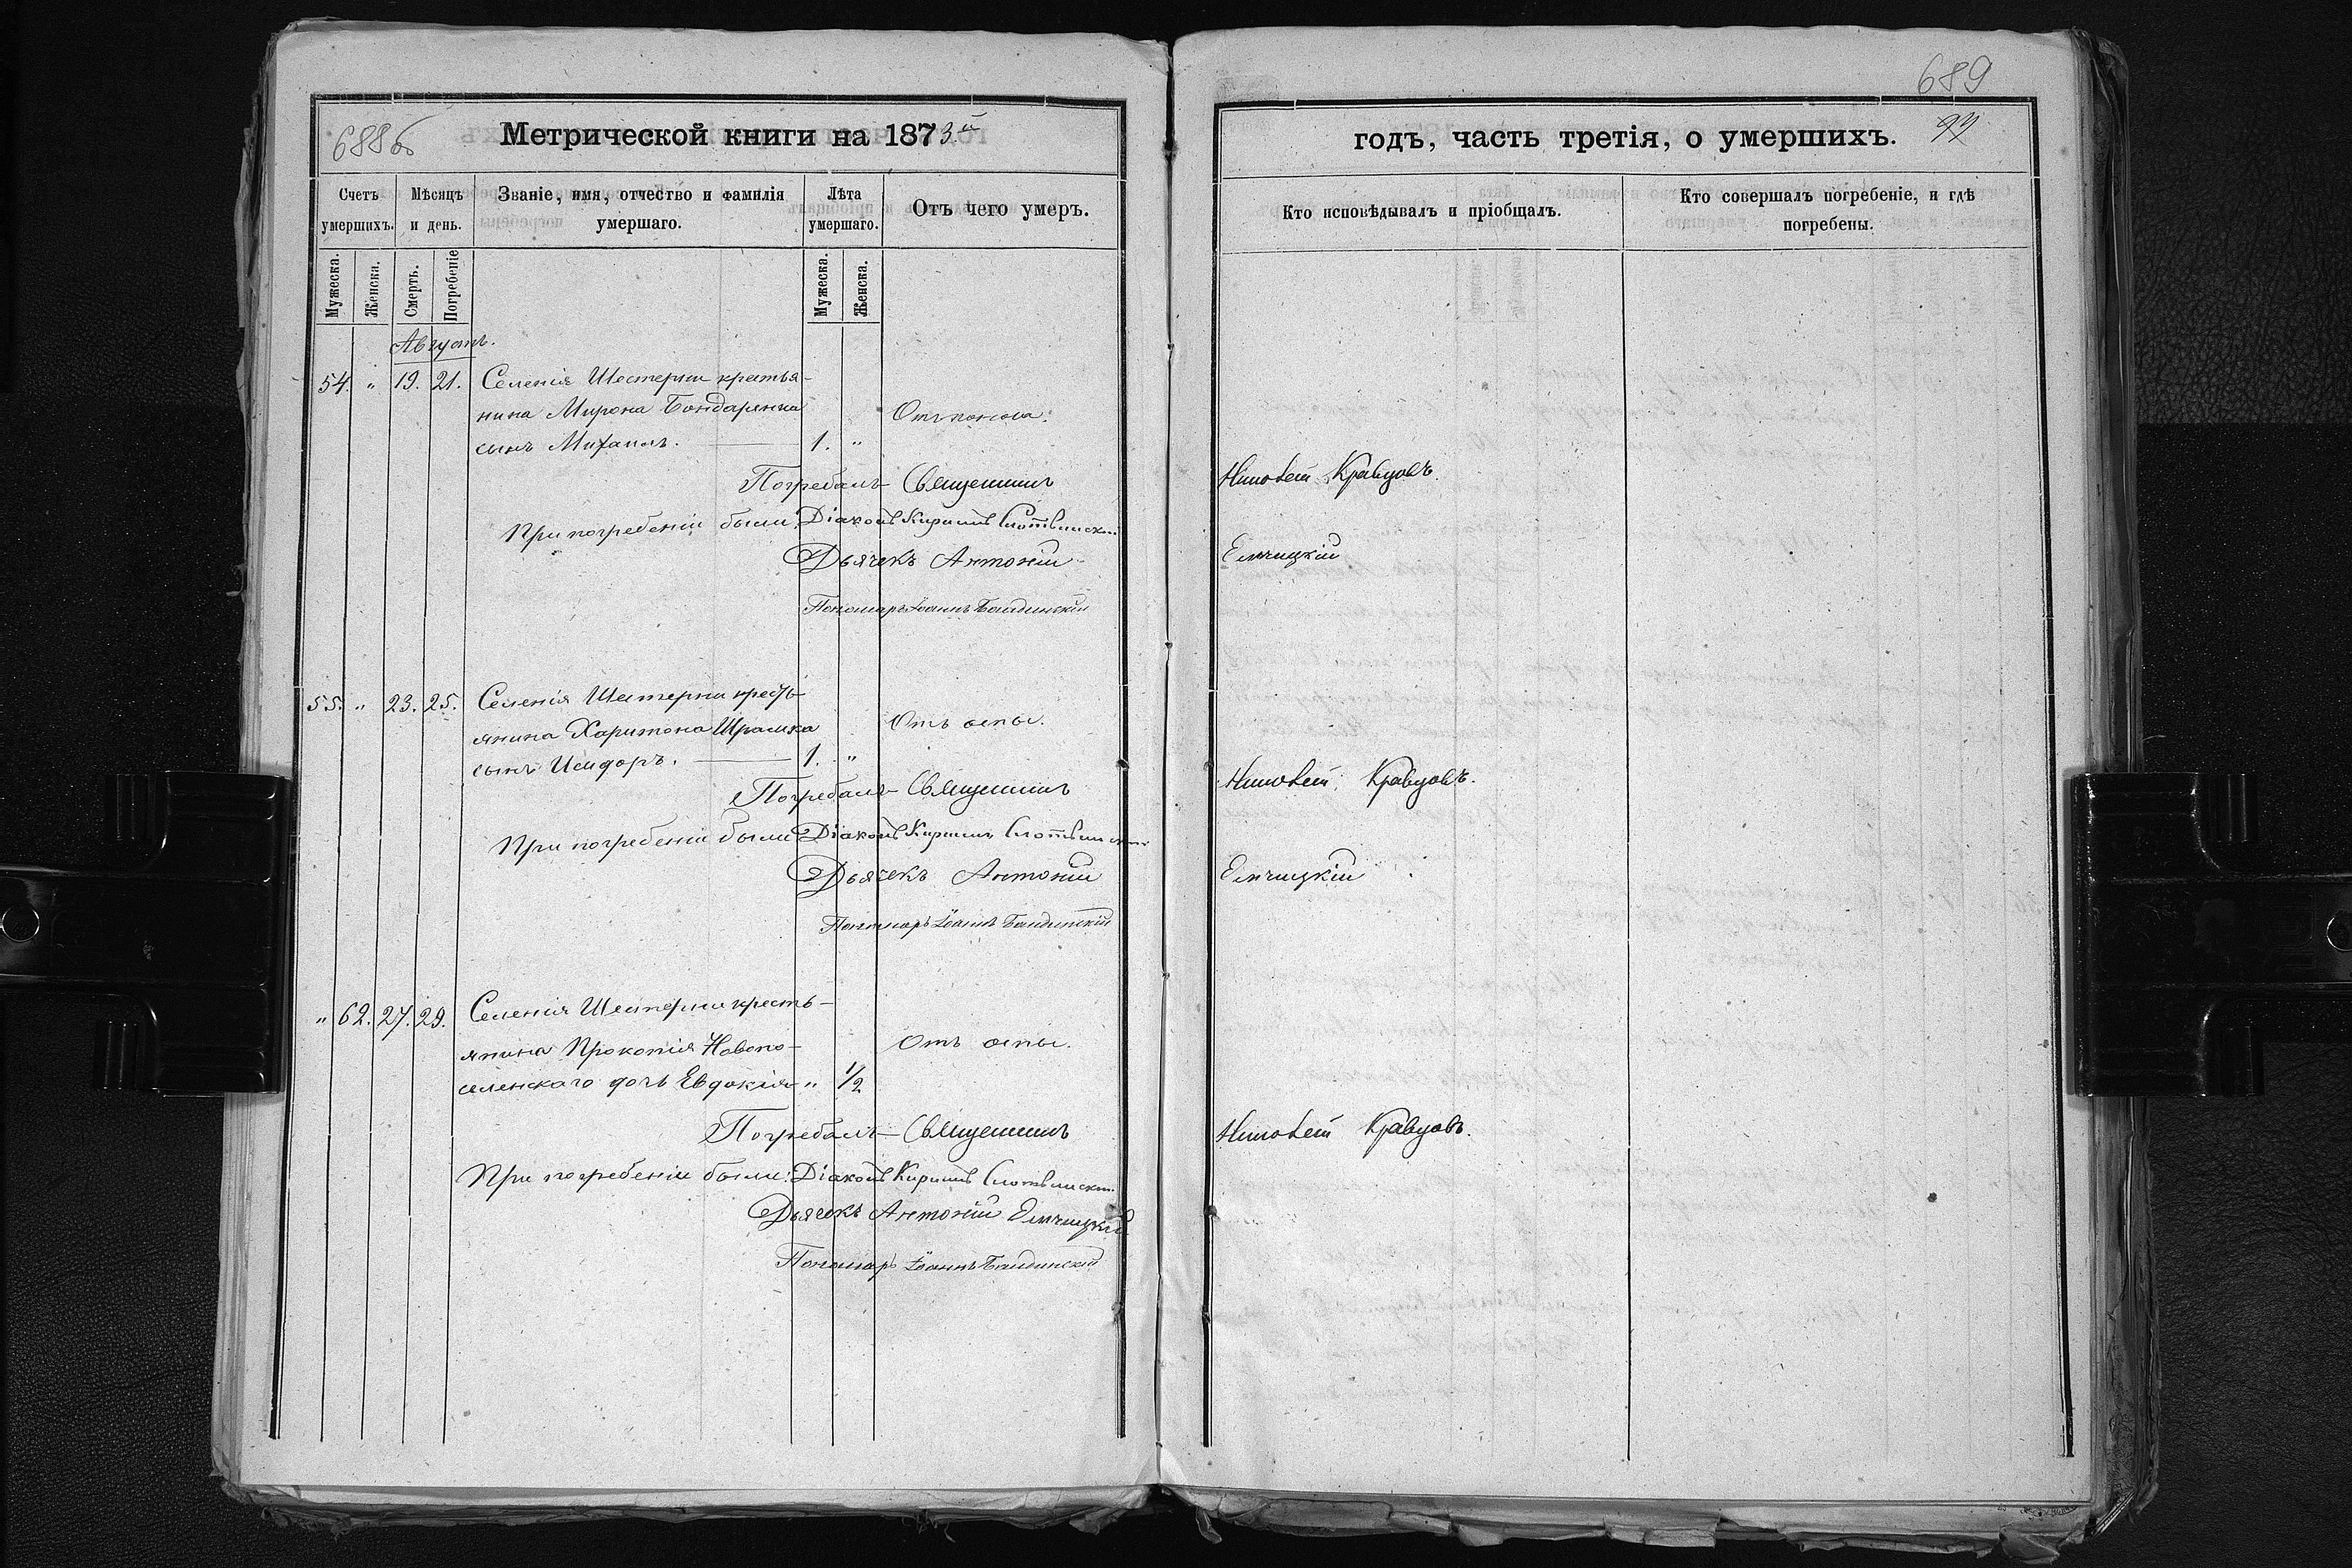 688б
Метрической книги на 1873й
Счетъ умершихъ.
Мѣсяцъ и день.
Званіе, имя, отчество и фамилія умершаго.
Лѣта умершаго.
Отъ чего умеръ.
Мужеска.
Женска.
Смерть.
Погребеніе
Мужеска.
Женска.
Августъ.
54. " 19. 21. Селенія Шестерни крестья-
нина Мирона Бондаренка
Отъ поноса.
сынъ Михаилъ. 1. "
Погребалъ Священникъ
При погребеніи были: Діаконъ Кириллъ
Дьячекъ Антоній
Пономарь Іоаннъ
55. " 23. 25. Селенія Шестерни кресть-
янина Харитона Шрамка
Отъ оспы.
сынъ Исидоръ. 1. "
Погребалъ Священникъ
При погребеніи были Діаконъ Кириллъ
Дьячекъ Антоній
Пономарь Іоаннъ
" 62. 27. 29. Селенія Шестерни кресть-
янина Прокопія Новопо-
Отъ оспы.
селенскаго дочь Евдокія " 1/2
Погребалъ Священникъ
При погребеніи были: Діаконъ Кириллъ
Дьячекъ Антоній Елчицкій
Пономарь Іоаннъ
689
годъ, часть третія, о умершихъ.
Кто исповѣдывалъ и пріобщалъ.
Кто совершалъ погребеніе, и гдѣ погребены.
Кравцовъ.
Елчицкій
Кравцовъ.
Елчицкій
Кравцовъ.